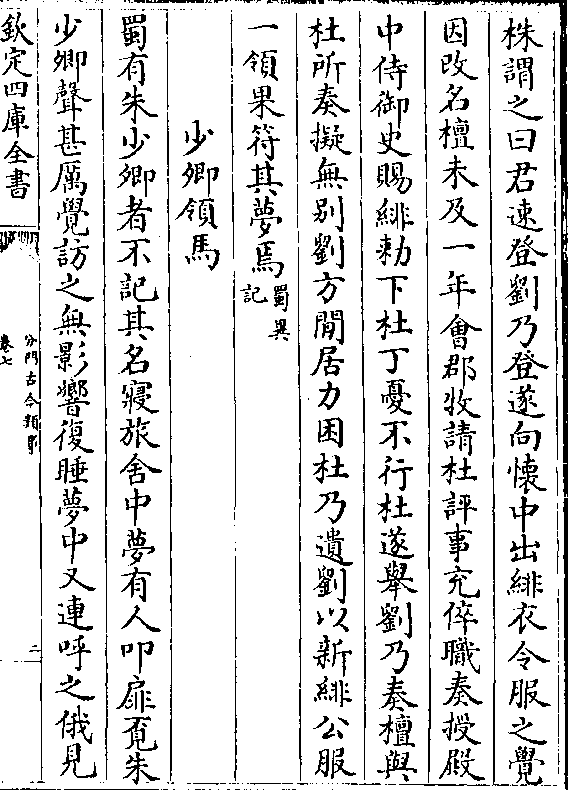 株謂之曰君速登劉乃登遂向懷中出緋衣令服之覺
因改名檀未及一年會郡牧請杜評事充倅職奏授殿
中侍御史賜緋勅下杜丁憂不行杜遂舉劉乃奏檀與
杜所奏擬無別劉方閒居力困杜乃遺劉以新緋公服
一領果符其夢焉蜀異記
少卿領馬
蜀有朱少卿者不記其名寢旅舍中夢有人叩扉覔朱
少卿聲甚厲覺訪之無影響復睡夢中又連呼之俄見
欽定四庫全書
分門古今類事
卷七
二